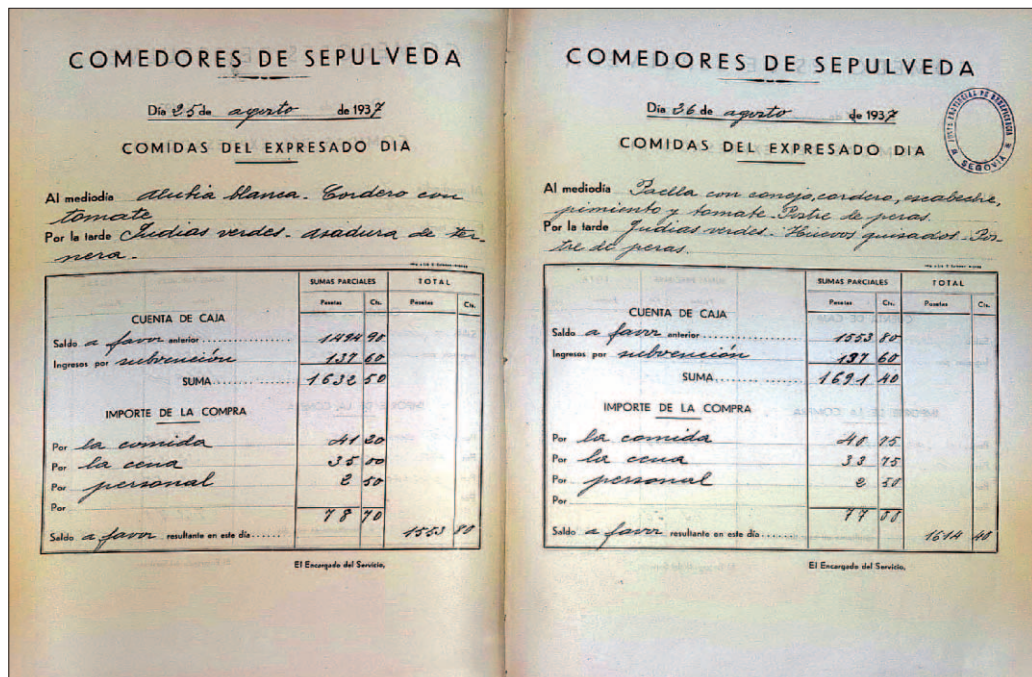 COMEDORES DE SEPULVEDA
Día 25 de agosto de 1937
COMIDAS DEL EXPRESADO DIA
Al mediodía Alubia blanca. Cordero con
tomate
Por la tarde Judias verdes. asadura de ter-
nera.
SUMAS PARCIALES TOTAL
Pesetas Cts. Pesetas Cts.
CUENTA DE CAJA
Saldo a favor anterior 1494 90
Ingresos por subvención 137 60
SUMA 1632 50
IMPORTE DE LA COMPRA
Por la comida 41 20
Por la cena 35 00
Por personal 2 50
Por
78 70
Saldo a favor resultante en este día 1553 80
El Encargado del Servicio,
COMEDORES DE SEPULVEDA
Día 26 de agosto de 1937
JUNTA PROVINCIAL DE BENEFICENCIA
SEGOVIA
COMIDAS DEL EXPRESADO DIA
Al mediodía Paella con conejo, cordero, escabeche,
pimiento y tomate. Postre de peras.
Por la tarde Judias verdes. Huevos guisados. Pos-
tre de peras.
SUMAS PARCIALES TOTAL
Pesetas Cts. Pesetas Cts.
CUENTA DE CAJA
Saldo a favor anterior 1553 80
Ingresos por subvención 137 60
SUMA 1691 40
IMPORTE DE LA COMPRA
Por la comida 40 75
Por la cena 33 75
Por personal 2 50
Por
77 00
Saldo a favor resultante en este día 1614 40
El Encargado del Servicio,